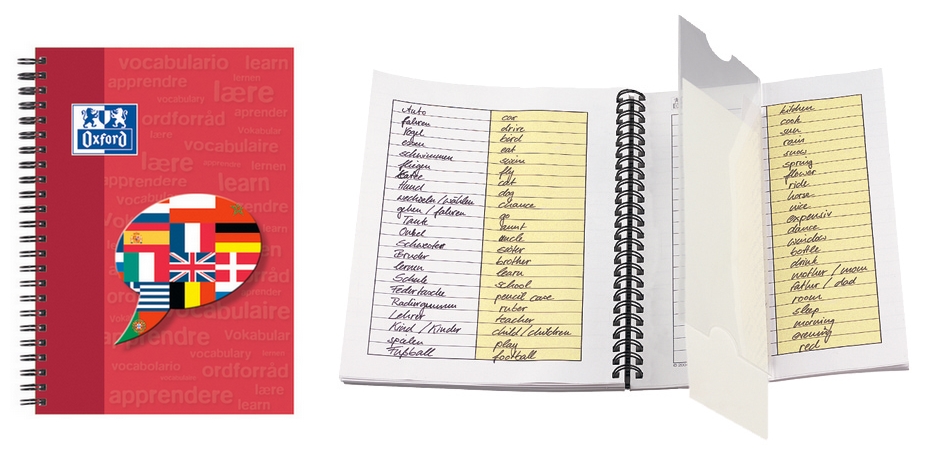 vocabulario learn
apprendre lernen
vocabulary lære
ordforråd aprender
lære Vokabular
Oxford
vocabulaire
lære apprendre lernen
learn
vocabulaire
apprendre Vokabular
vocabulary lernen
vocabolario ordforråd
lære
apprendere learn
Auto car
fahren drive
Vogel bird
essen eat
schwimmen swim
fliegen fly
Katze cat
Hund dog
wechseln/wählen chance
gehen / fahren go
Tante aunt
Onkel uncle
Schwester sister
Bruder brother
lernen learn
Schule school
Federtasche pencil case
Radiergummi ruber
Lehrer teacher
Kind / Kinder child/children
spielen play
Fußball football
kitchen
cook
sun
rain
snow
spring
flower
ride
horse
nice
expensiv
dance
window
bottle
drink
mother / mom
father / dad
room
sleep
morning
evening
red